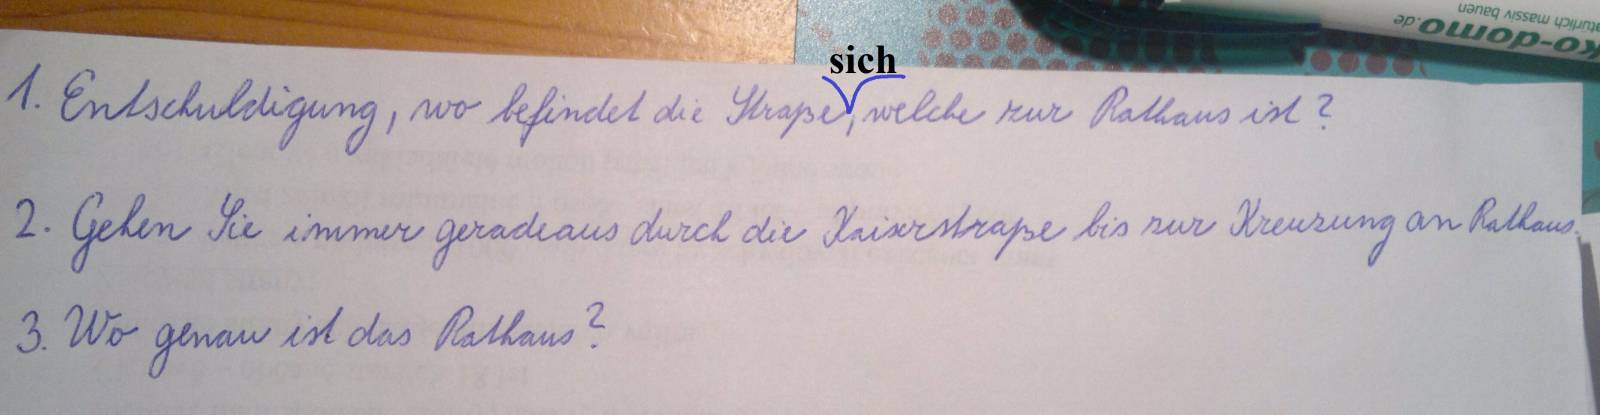 ko-domo.de
natürlich massiv bauen
sich
1. Entschuldigung, wo befindet die Straße, welche zur Rathaus ist?
2. Gehen Sie immer geradeaus durch die Kaiserstraße bis zur Kreuzung an Rathaus.
3. Wo genau ist das Rathaus?